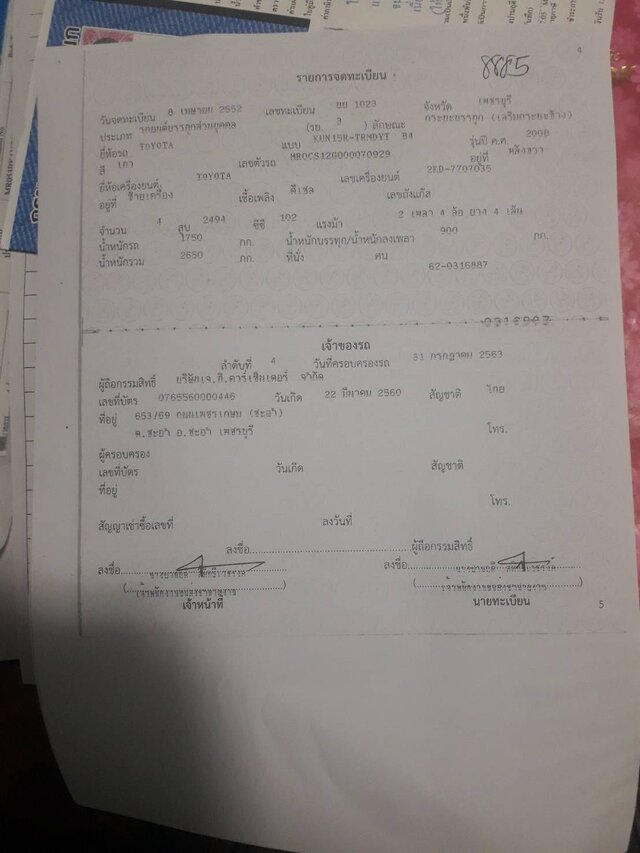 4
8885
รายการจดทะเบียน
วันจดทะเบียน 8 เมษายน 2552 เลขทะเบียน ยย 1023 จังหวัด เพชรบุรี
ประเภท รถยนต์บรรทุกส่วนบุคคล (รย. 3 ) ลักษณะ กระบะบรรทุก (เสริมกระบะข้าง)
ยี่ห้อรถ TOYOTA แบบ KUN15R-TRMDYT B4 รุ่นปี ค.ศ. 2008
สี เทา เลขตัวรถ MR0CS12G000070929 อยู่ที่
ยี่ห้อเครื่องยนต์ TOYOTA เลขเครื่องยนต์ 2KD-7707035
อยู่ที่ ซ้ายเครื่อง เชื้อเพลิง ดีเซล เลขถังแก๊ส
จำนวน 4 สูบ 2494 ซีซี 102 แรงม้า 2 เพลา 4 ล้อ ยาง 4 เส้น
น้ำหนักรถ 1750 กก. น้ำหนักบรรทุก/น้ำหนักลงเพลา 900 กก.
น้ำหนักรวม 2650 กก. ที่นั่ง คน
62-0316887
เจ้าของรถ
ลำดับที่ 4 วันที่ครอบครองรถ 31 กรกฎาคม 2563
ผู้ถือกรรมสิทธิ์ บริษัทเจ.ที.คาร์เซ็นเตอร์ จำกัด
เลขที่บัตร 0765560000446 วันเกิด 22 มีนาคม 2560 สัญชาติ ไทย
ที่อยู่ 653/69 ถนนเพชรเกษม (ชะอำ)
ต.ชะอำ อ.ชะอำ เพชรบุรี โทร.
ผู้ครอบครอง
เลขที่บัตร วันเกิด สัญชาติ
ที่อยู่
โทร.
สัญญาเช่าซื้อเลขที่ ลงวันที่
ลงชื่อ ผู้ถือกรรมสิทธิ์
ลงชื่อ ลงชื่อ
(เจ้าพนักงานขนส่งชำนาญงาน) (เจ้าพนักงานขนส่งชำนาญงาน)
เจ้าหน้าที่ นายทะเบียน
5